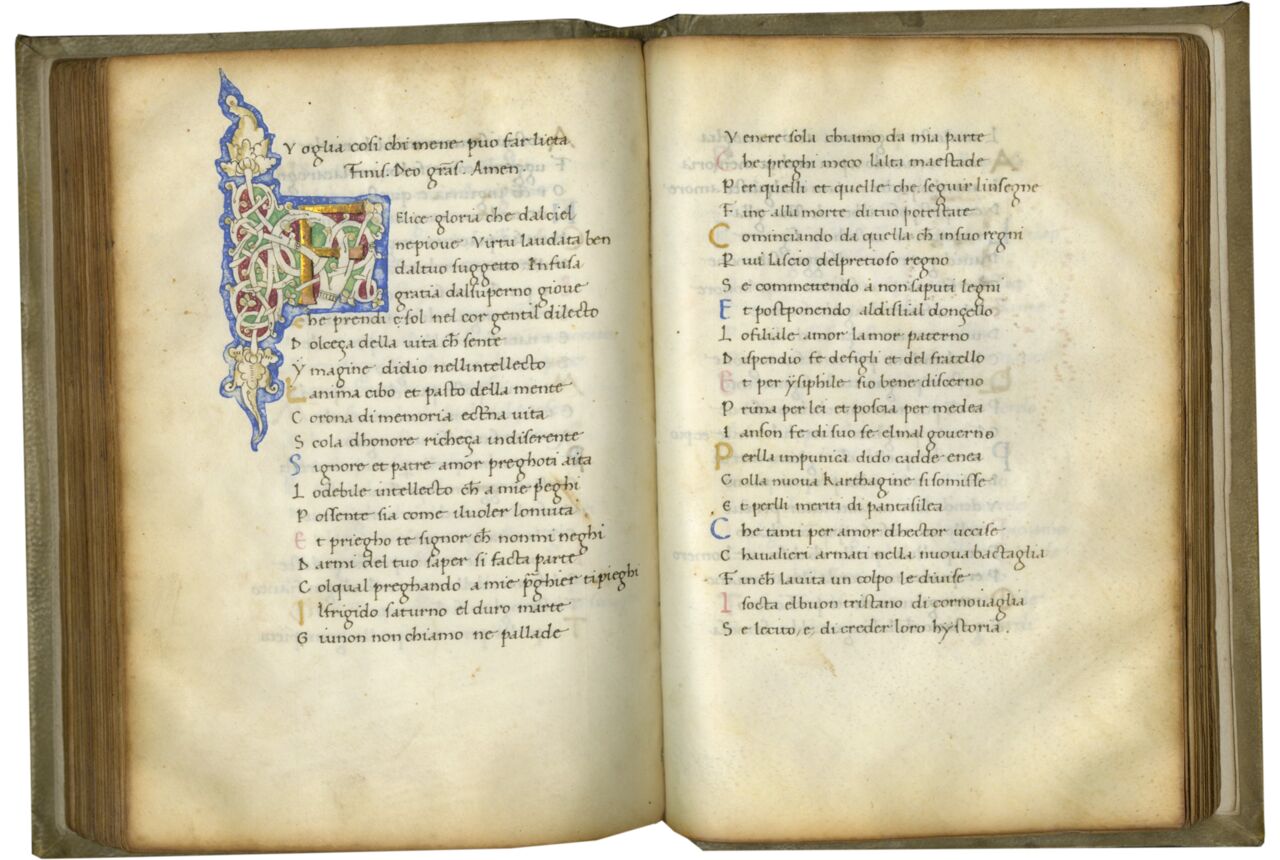 Voglia cosi chi mene puo far lieta
Finis. Deo grãs. Amen.
Felice gloria che dalciel
nepioue Virtu laudata ben
daltuo suggetto Infusa
gratia dalsuperno gioue
Che prendi e sol nel cor gentil dilecto
Dolceça della uita ch̃ sente
Ymagine didio nellintellecto
Lanima cibo et pasto della mente
Corona di memoria ect̃na uita
Scola dhonore richeça indiferente
Signore et patre amor preghoti aita
Lodebile intellecto ch̃ a mie p̃eghi
Possente sia come iluoler lonuita
Et priegho te signor ch̃ non mi neghi
Darmi del tuo saper si facta parte
Colqual preghando a mie p̃ghier ti pieghi
Ilfrigido saturno el duro marte
Giunon non chiamo ne pallade
Venere sola chiamo da mia parte
Che preghi meco lalta maestade
Per quelli et quelle che seguir linsegne
Fine alla morte di tuo potestate
Cominciando da quella ch̃ insuo regni
Pui lascio delpretioso regno
Se commettendo a non saputi legni
Et postponendo aldisiial dongello
Lofiliale amor lamor paterno
Dispendio fe defigli et del fratello
Et per ÿsiphile sio bene discerno
Prima per lei et poscia per medea
Ianson fe di suo fe elmal gouerno
Perlla impunica dido cadde enea
Colla nuoua Karthagine si somisse
Et perlli meriti di pantasilea
Che tanti per amor dhector uccise
Chaualieri armati nella nuoua bactaglia
Finch̃ lauita un colpo le diuise
Isocta elbuon tristano di cornouaglia
Se lecito, e, di creder loro hystoria.